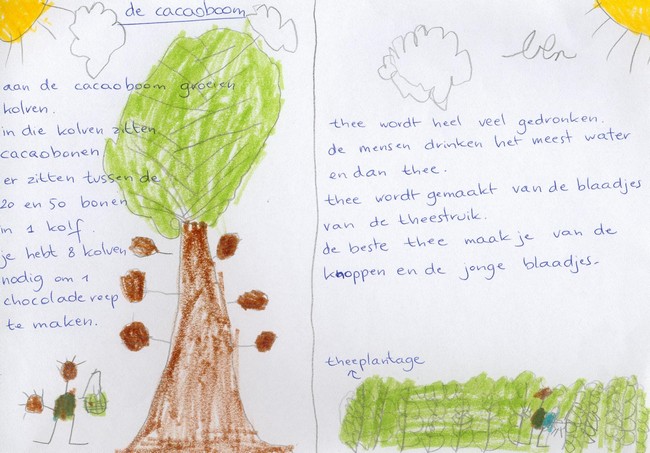 de cacaoboom
aan de cacaoboom groeien
kolven.
in die kolven zitten
cacaobonen
er zitten tussen de
20 en 50 bonen
in 1 kolf.
je hebt 8 kolven
nodig om 1
chocolade reep
te maken.
thee wordt heel veel gedronken.
de mensen drinken het meest water
en dan thee.
thee wordt gemaakt van de blaadjes
van de theestruik.
de beste thee maak je van de
knoppen en de jonge blaadjes.
theeplantage